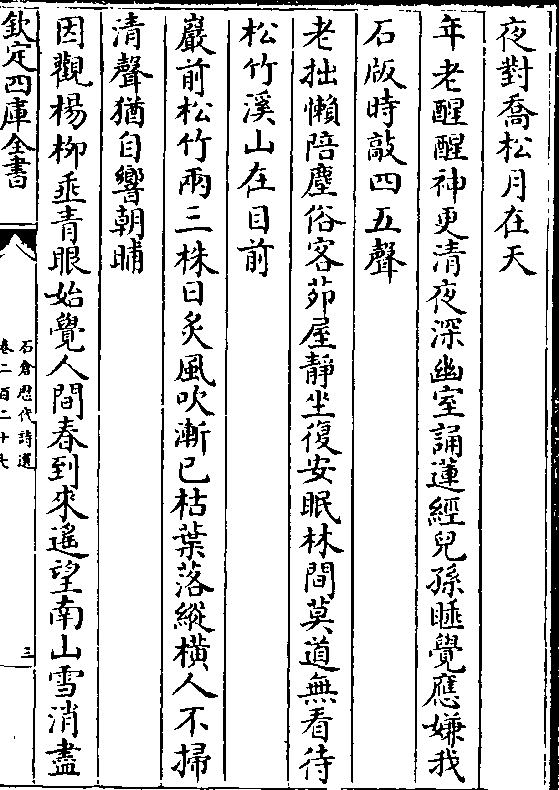 夜對喬松月在天
年老醒醒神更清夜深幽室誦蓮經兒孫睡覺應嫌我
石版時敲四五聲
老拙懶陪塵俗客茆屋靜坐復安眠林間莫道無看待
松竹溪山在目前
巖前松竹兩三株日炙風吹漸已枯葉落縱橫人不掃
清聲猶自響朝晡
因觀楊柳垂青眼始覺人間春到來遙望南山雪消盡
欽定四庫全書
石倉歷代詩選
卷二百二十七
三